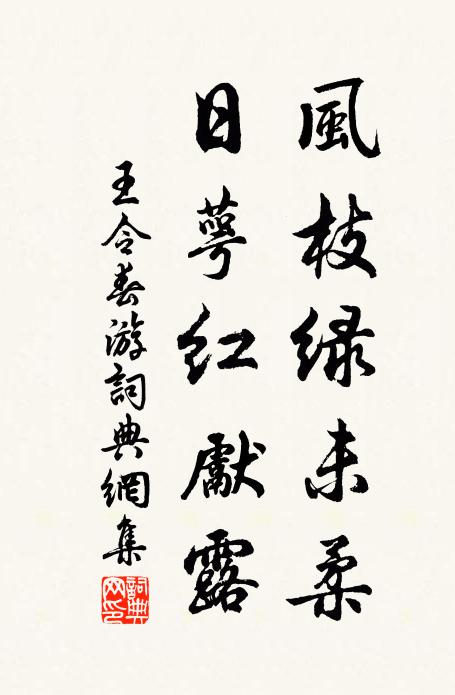 風枝緑未柔
日萼紅獻露
王令春游詞典網集
詞典
网印